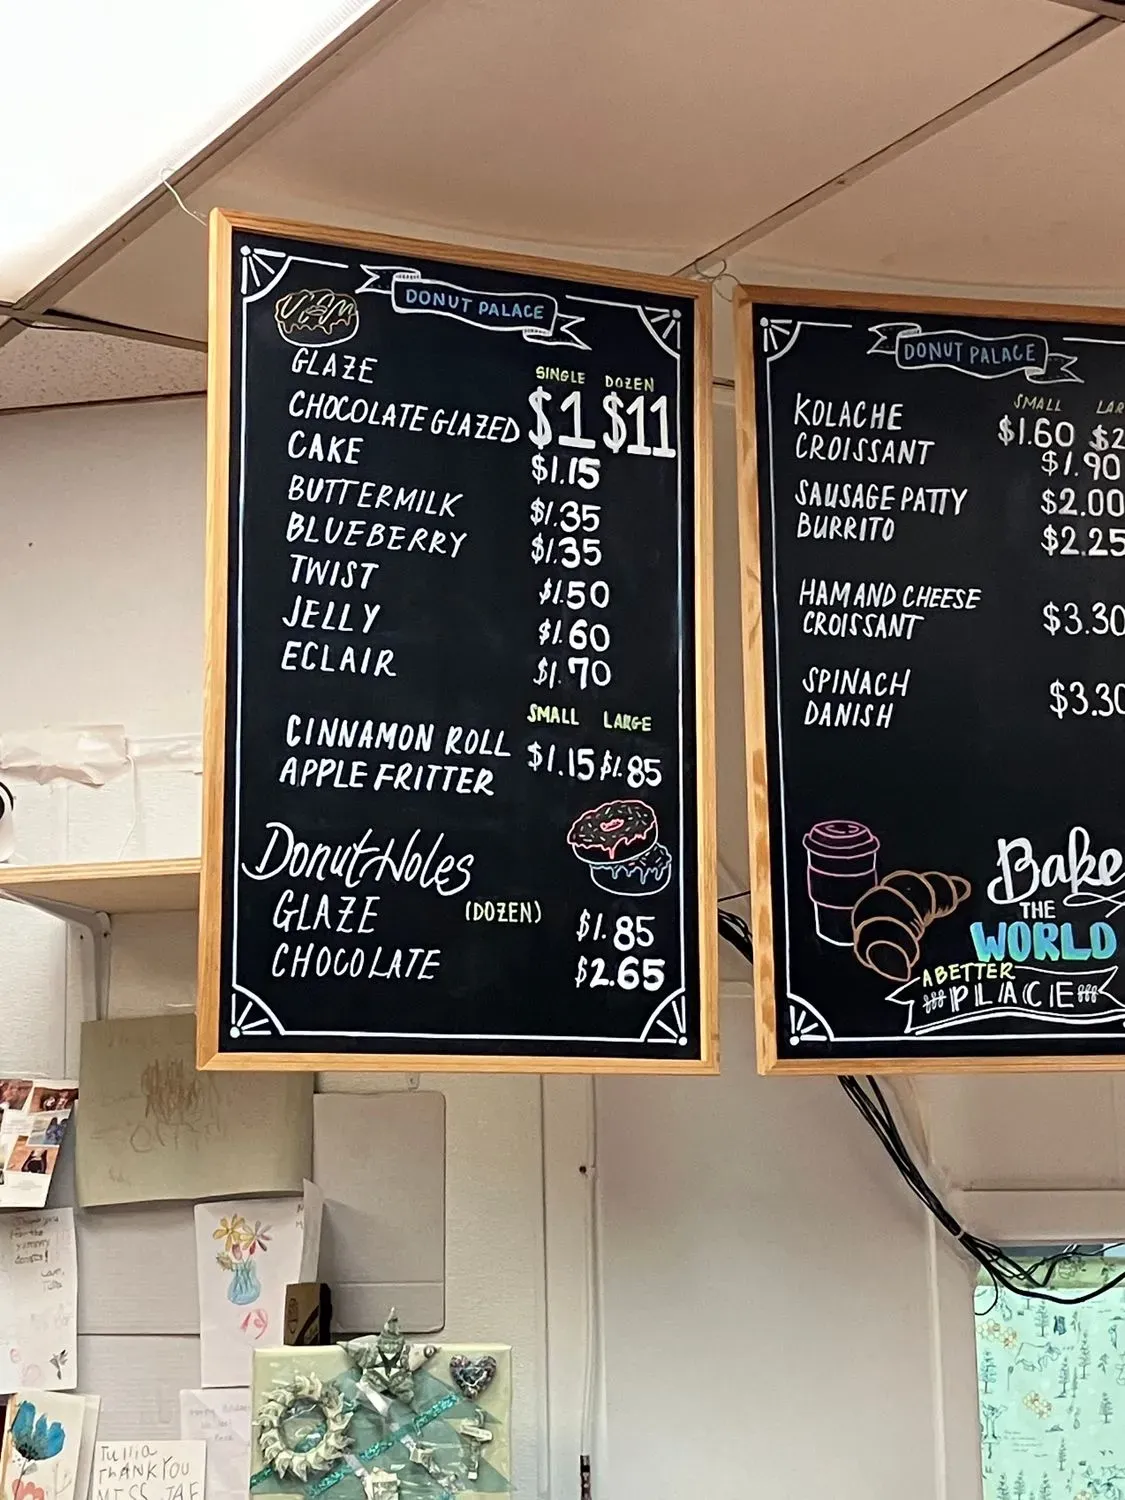 DONUT PALACE
SINGLE DOZEN
GLAZE
CHOCOLATE GLAZED $1 $11
CAKE $1.15
BUTTERMILK $1.35
BLUEBERRY $1.35
TWIST $1.50
JELLY $1.60
ECLAIR $1.70
SMALL LARGE
CINNAMON ROLL $1.15 $1.85
APPLE FRITTER
Donut Holes
(DOZEN)
GLAZE $1.85
CHOCOLATE $2.65
DONUT PALACE
SMALL LAR
KOLACHE $1.60 $2
CROISSANT $1.90
SAUSAGE PATTY $2.00
BURRITO $2.25
HAM AND CHEESE
CROISSANT $3.30
SPINACH
DANISH $3.30
Bake
THE
WORLD
A BETTER
PLACE
Tullia
THANK YOU
MISS JAE